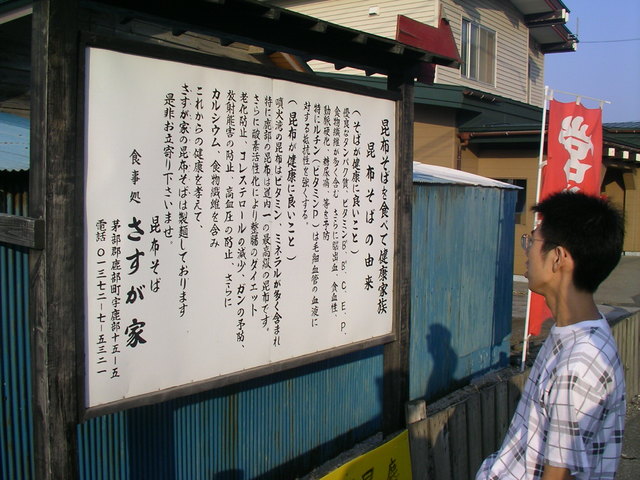 昆布そばを食べて健康家族
昆布そばの由来
（そばが健康に良いこと）
優良なタンパク質、ビタミンB、B、C、E、P、
食物繊維が多く含む、さらに脳出血、貧血性、
動脈硬化、糖尿病、等々予防
特にルチン（ビタミンP）は毛細血管の血液に
対する抵抗性を強くする。
（昆布が健康に良いこと）
噴火湾の昆布はビタミン、ミネラルが多く含まれ
特に鹿部の昆布は道内一の最高級の昆布です。
さらに酸素活性化により整腸のダイエット
老化防止、コレステロールの減少、ガンの予防、
放射能害の防止、高血圧の防止、さらに
カルシウム、食物繊維を含み
これからの健康を考えて、
さすが家の昆布そばは製麺しております
是非お立寄り下さいませ。
食事処 昆布そば
さすが家
茅部郡鹿部町字鹿部十五－五
電話 〇一三七二－七－五三二一
営
鹿